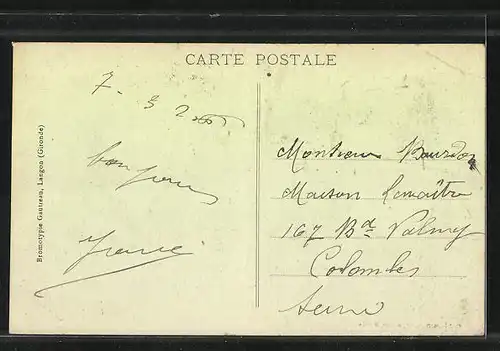 CARTE POSTALE
7 - 3 2
bon jour
Bromotypie Gautreau, Langon (Gironde)
Monsieur Bourdon
Maison Lemaître
167 Bd Valmy
Colombes
Seine